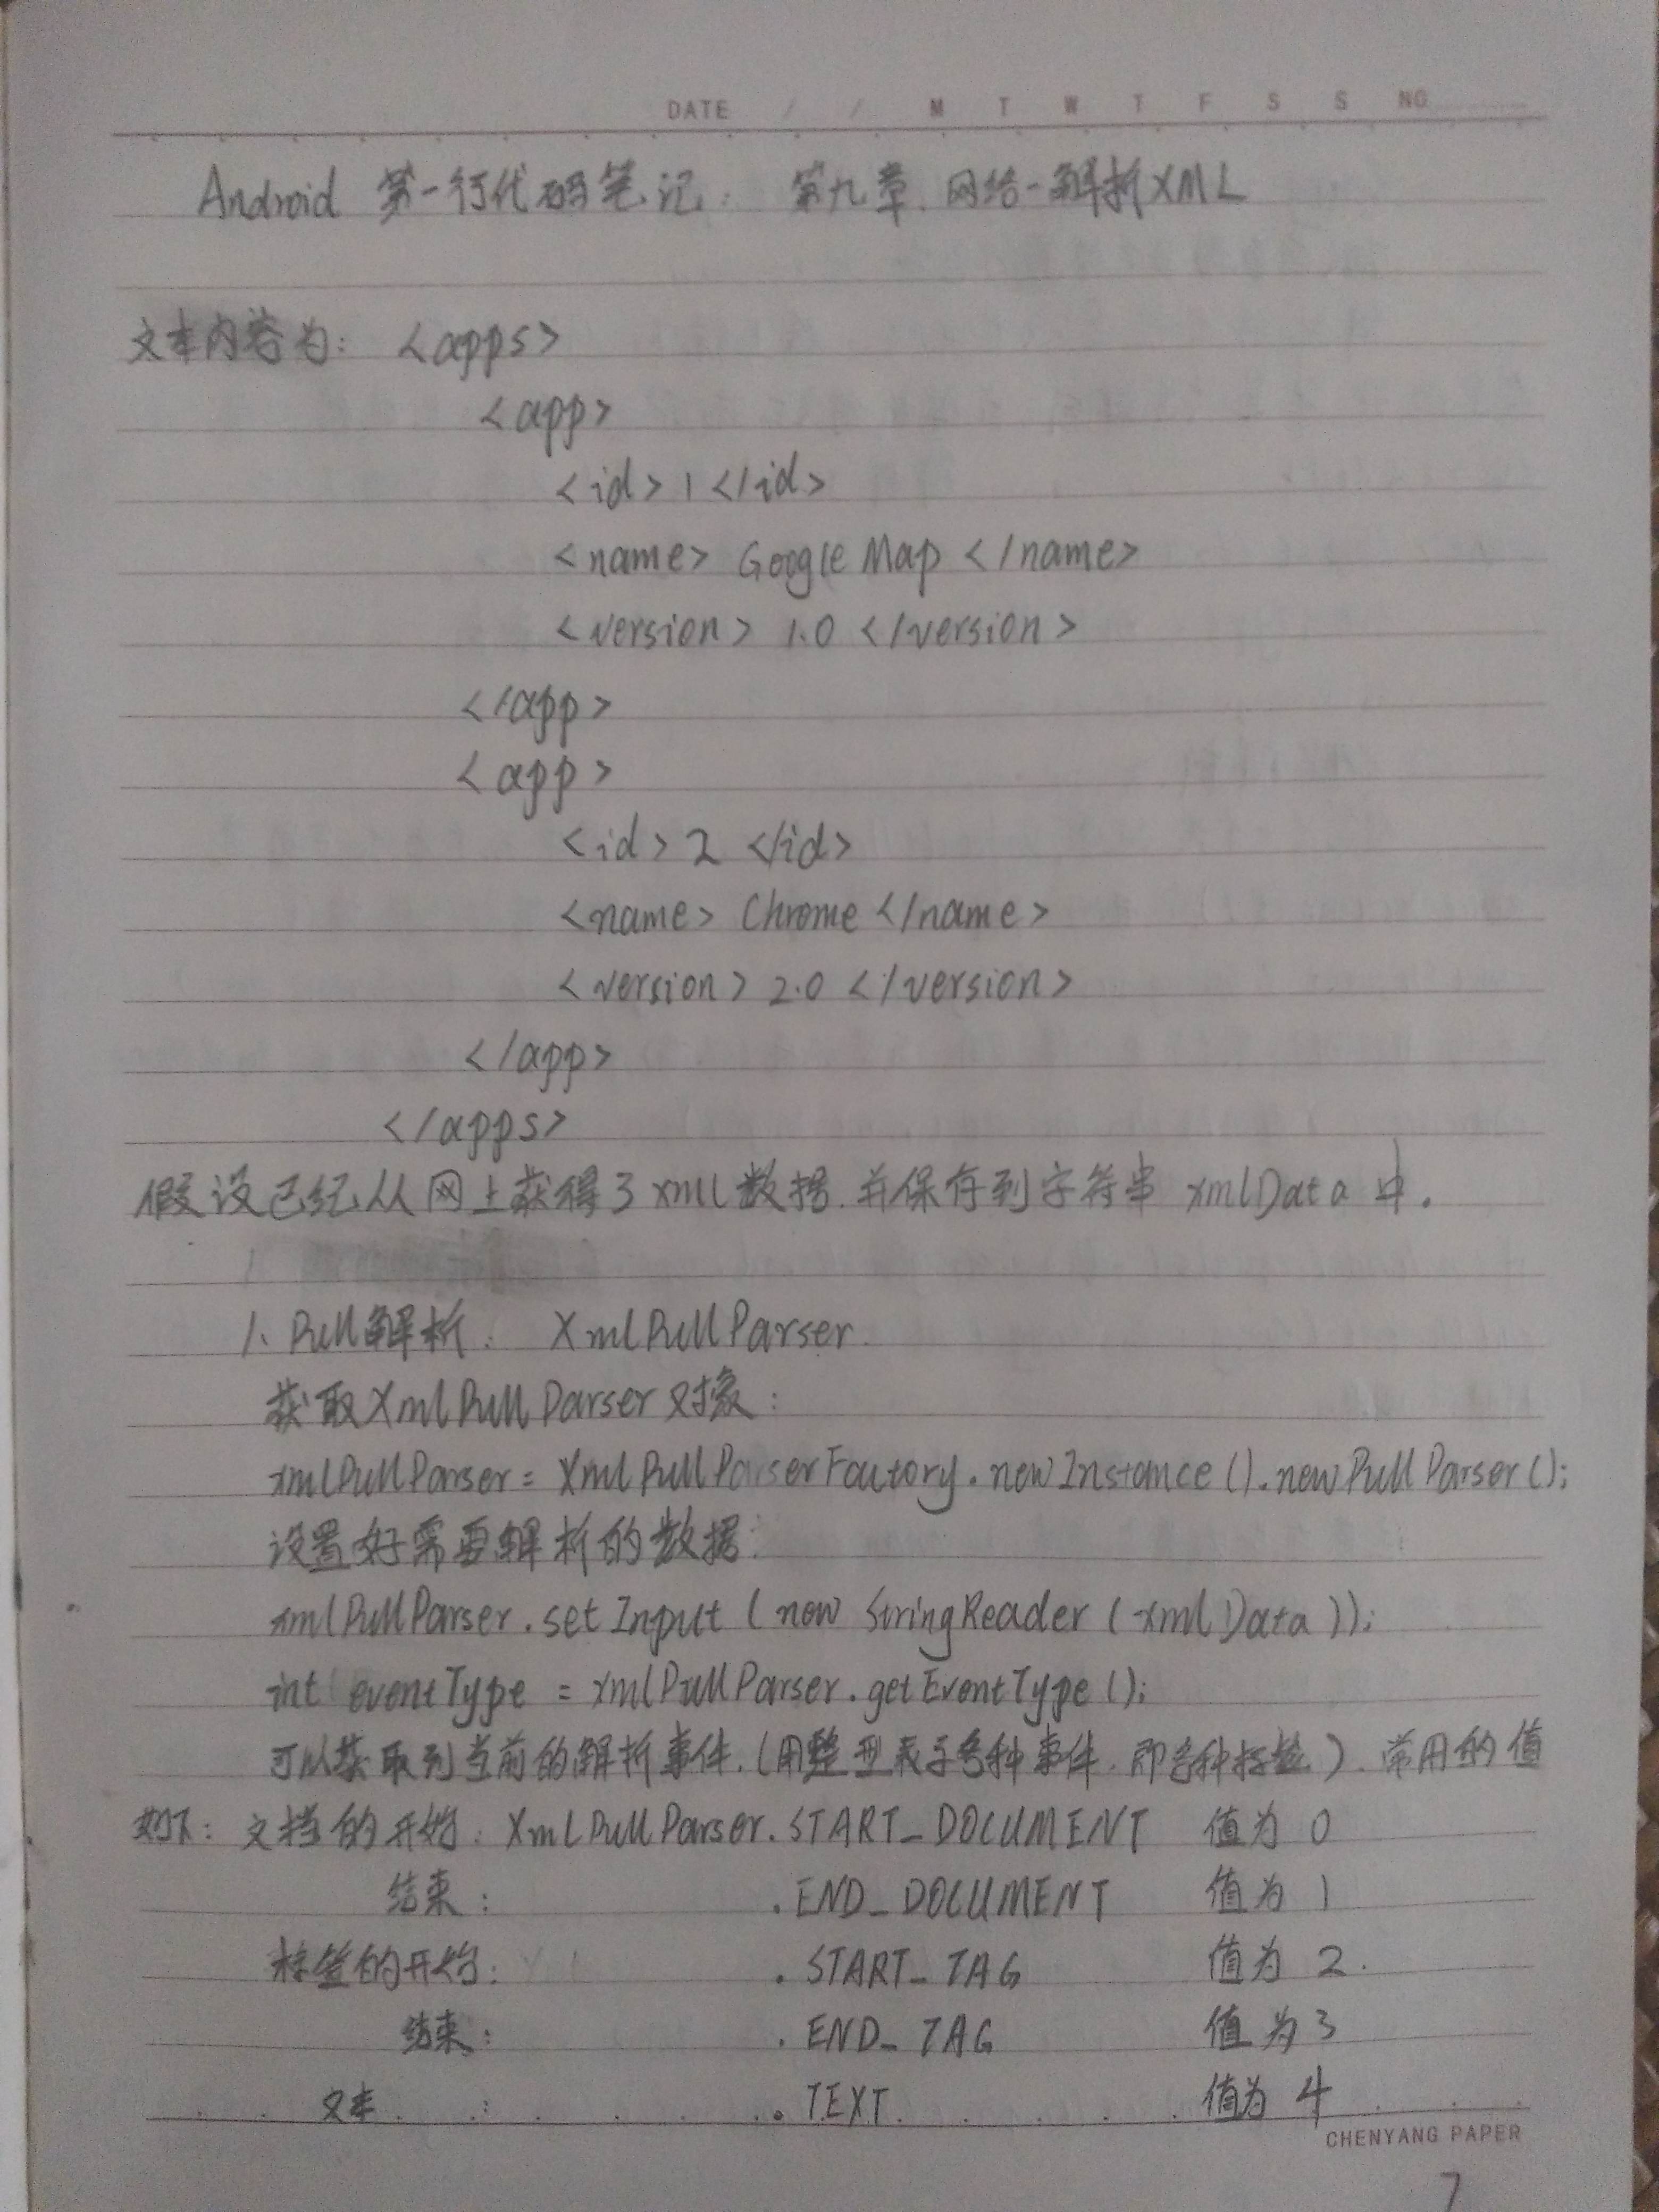 DATE / / M T W T F S S NO
Android 第一行代码笔记: 第九章.网络-解析XML
文本内容为: <apps>
<app>
<id>1</id>
<name> Google Map </name>
<version> 1.0 </version>
</app>
<app>
<id>2 </id>
<name> Chrome </name>
<version> 2.0 </version>
</app>
</apps>
假设已经从网上获得了xml数据.并保存到字符串 xmlData 中.
1、Pull解析: XmlPullParser
获取XmlPullParser对象:
xmlPullParser = XmlPullParserFactory.newInstance().newPullParser();
设置好需要解析的数据:
xmlPullParser.setInput (new StringReader (xmlData));
int eventType = xmlPullParser.getEventType();
可以获取到当前的解析事件.(用整型表示各种事件.即各种标签).常用的值
如下: 文档的开始: XmlPullParser.START_DOCUMENT 值为 0
结束: .END_DOCUMENT 值为 1
标签的开始: .START_TAG 值为 2.
结束: .END_TAG 值为3
文本 : .TEXT 值为 4
CHENYANG PAPER
7